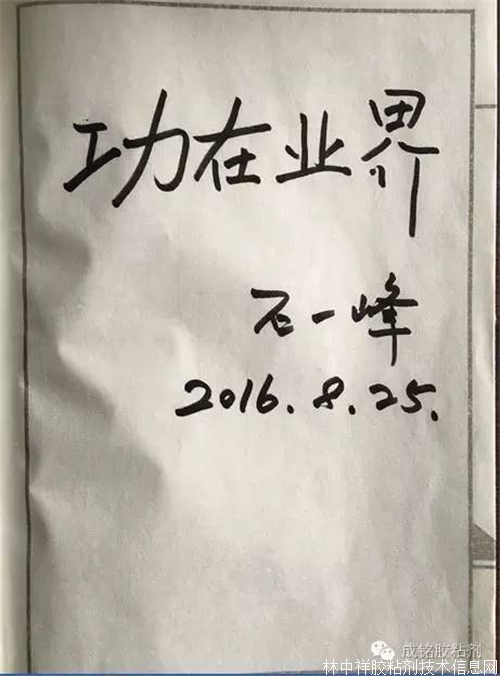 功在业界
石一峰
2016.8.25.
成铭胶粘剂
林中祥胶粘剂技术信息网